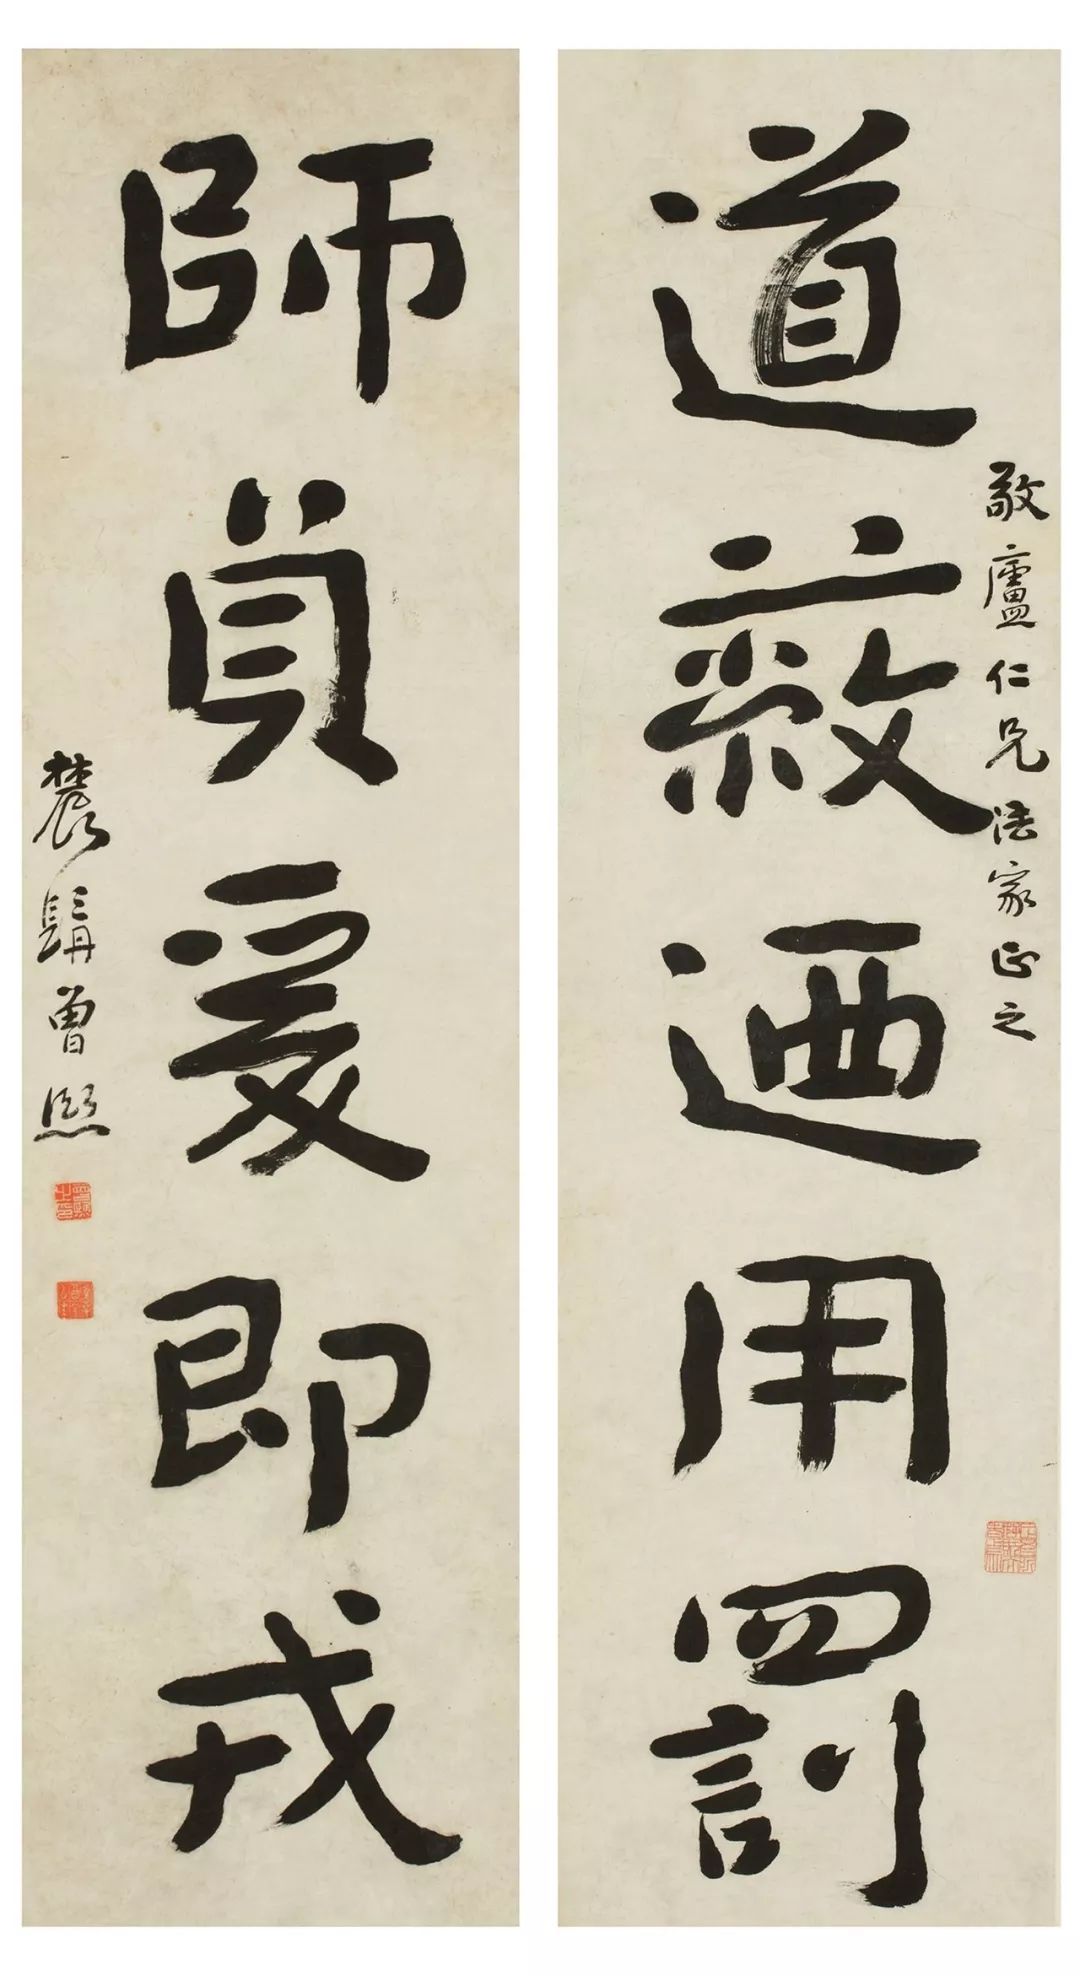 道蔽迺用罰
敬廬仁兄法家正之
師貞爰即戎
農髯曾熙